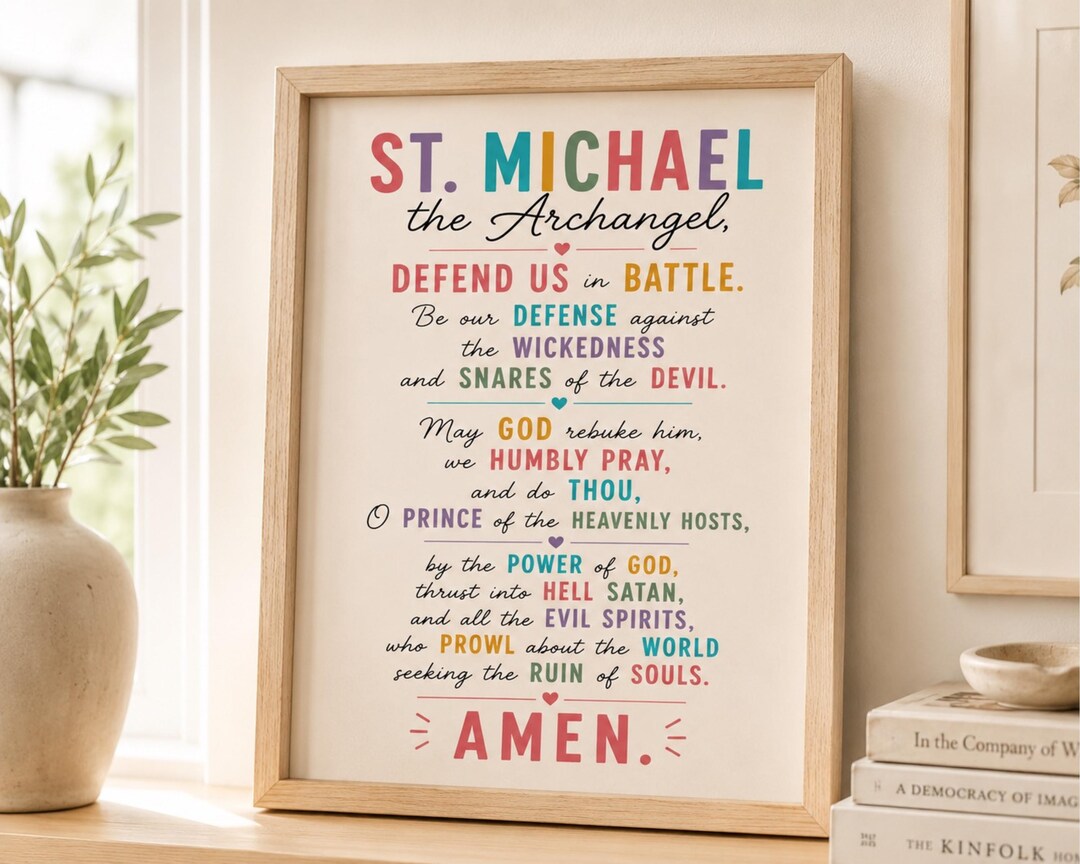 ST. MICHAEL
the Archangel,
DEFEND US in BATTLE.
Be our DEFENSE against
the WICKEDNESS
and SNARES of the DEVIL.
May GOD rebuke him,
we HUMBLY PRAY,
and do THOU,
O PRINCE of the HEAVENLY HOSTS,
by the POWER of GOD,
thrust into HELL SATAN,
and all the EVIL SPIRITS,
who PROWL about the WORLD
seeking the RUIN of SOULS.
AMEN.
In the Company of W
A DEMOCRACY OF IMAG
THE KINFOLK HO